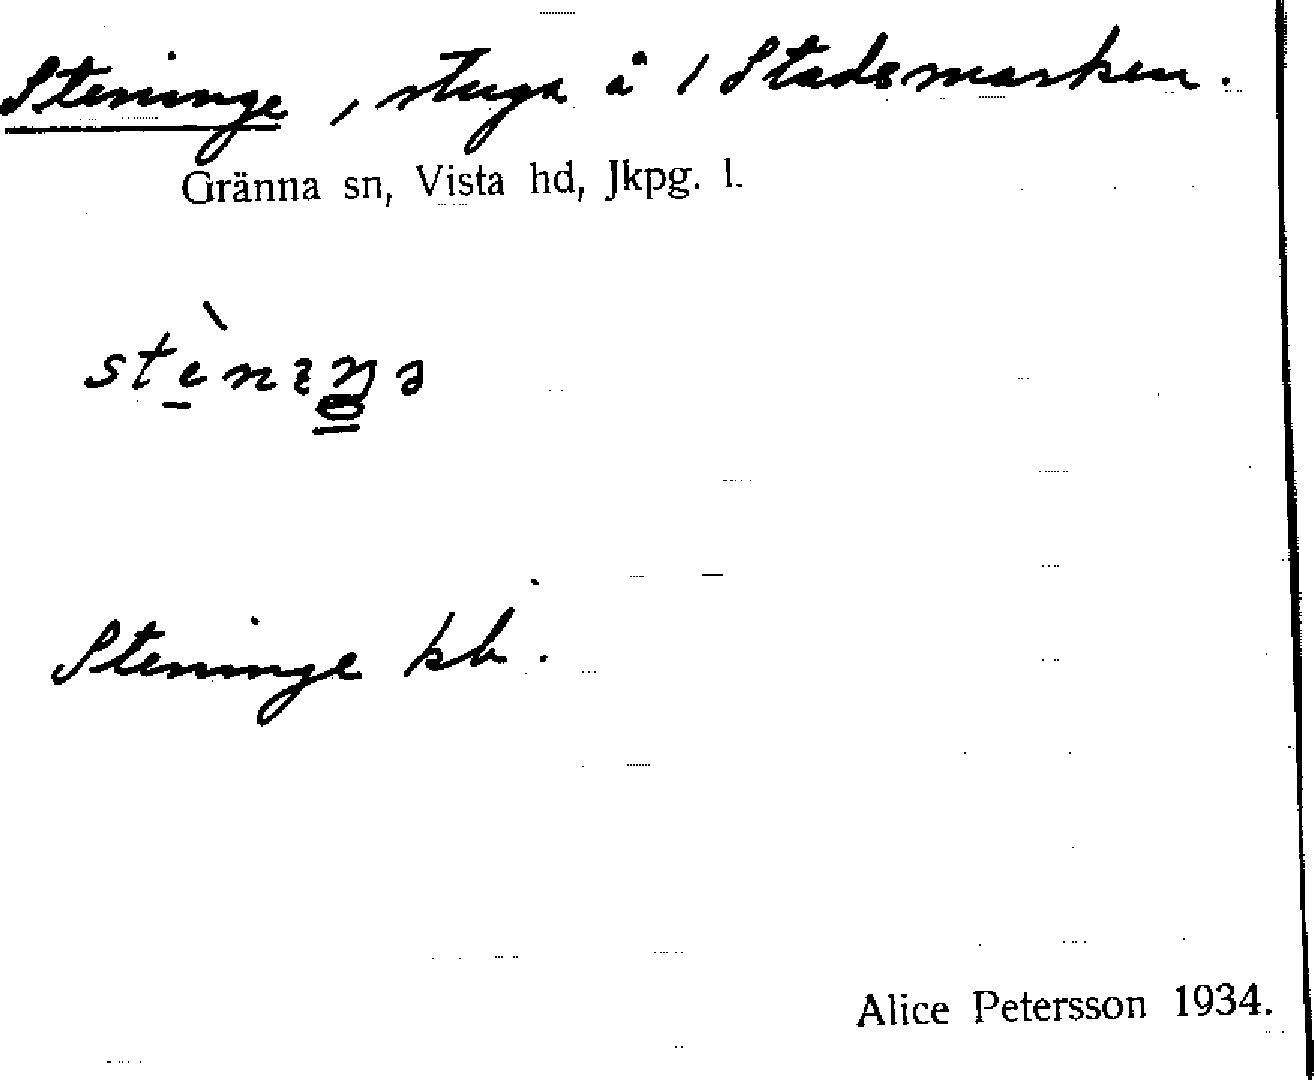 Steninge, stuga å / Stadsmarken.
Gränna sn, Vista hd, Jkpg. l.
Steninge kb.
Alice Petersson 1934.